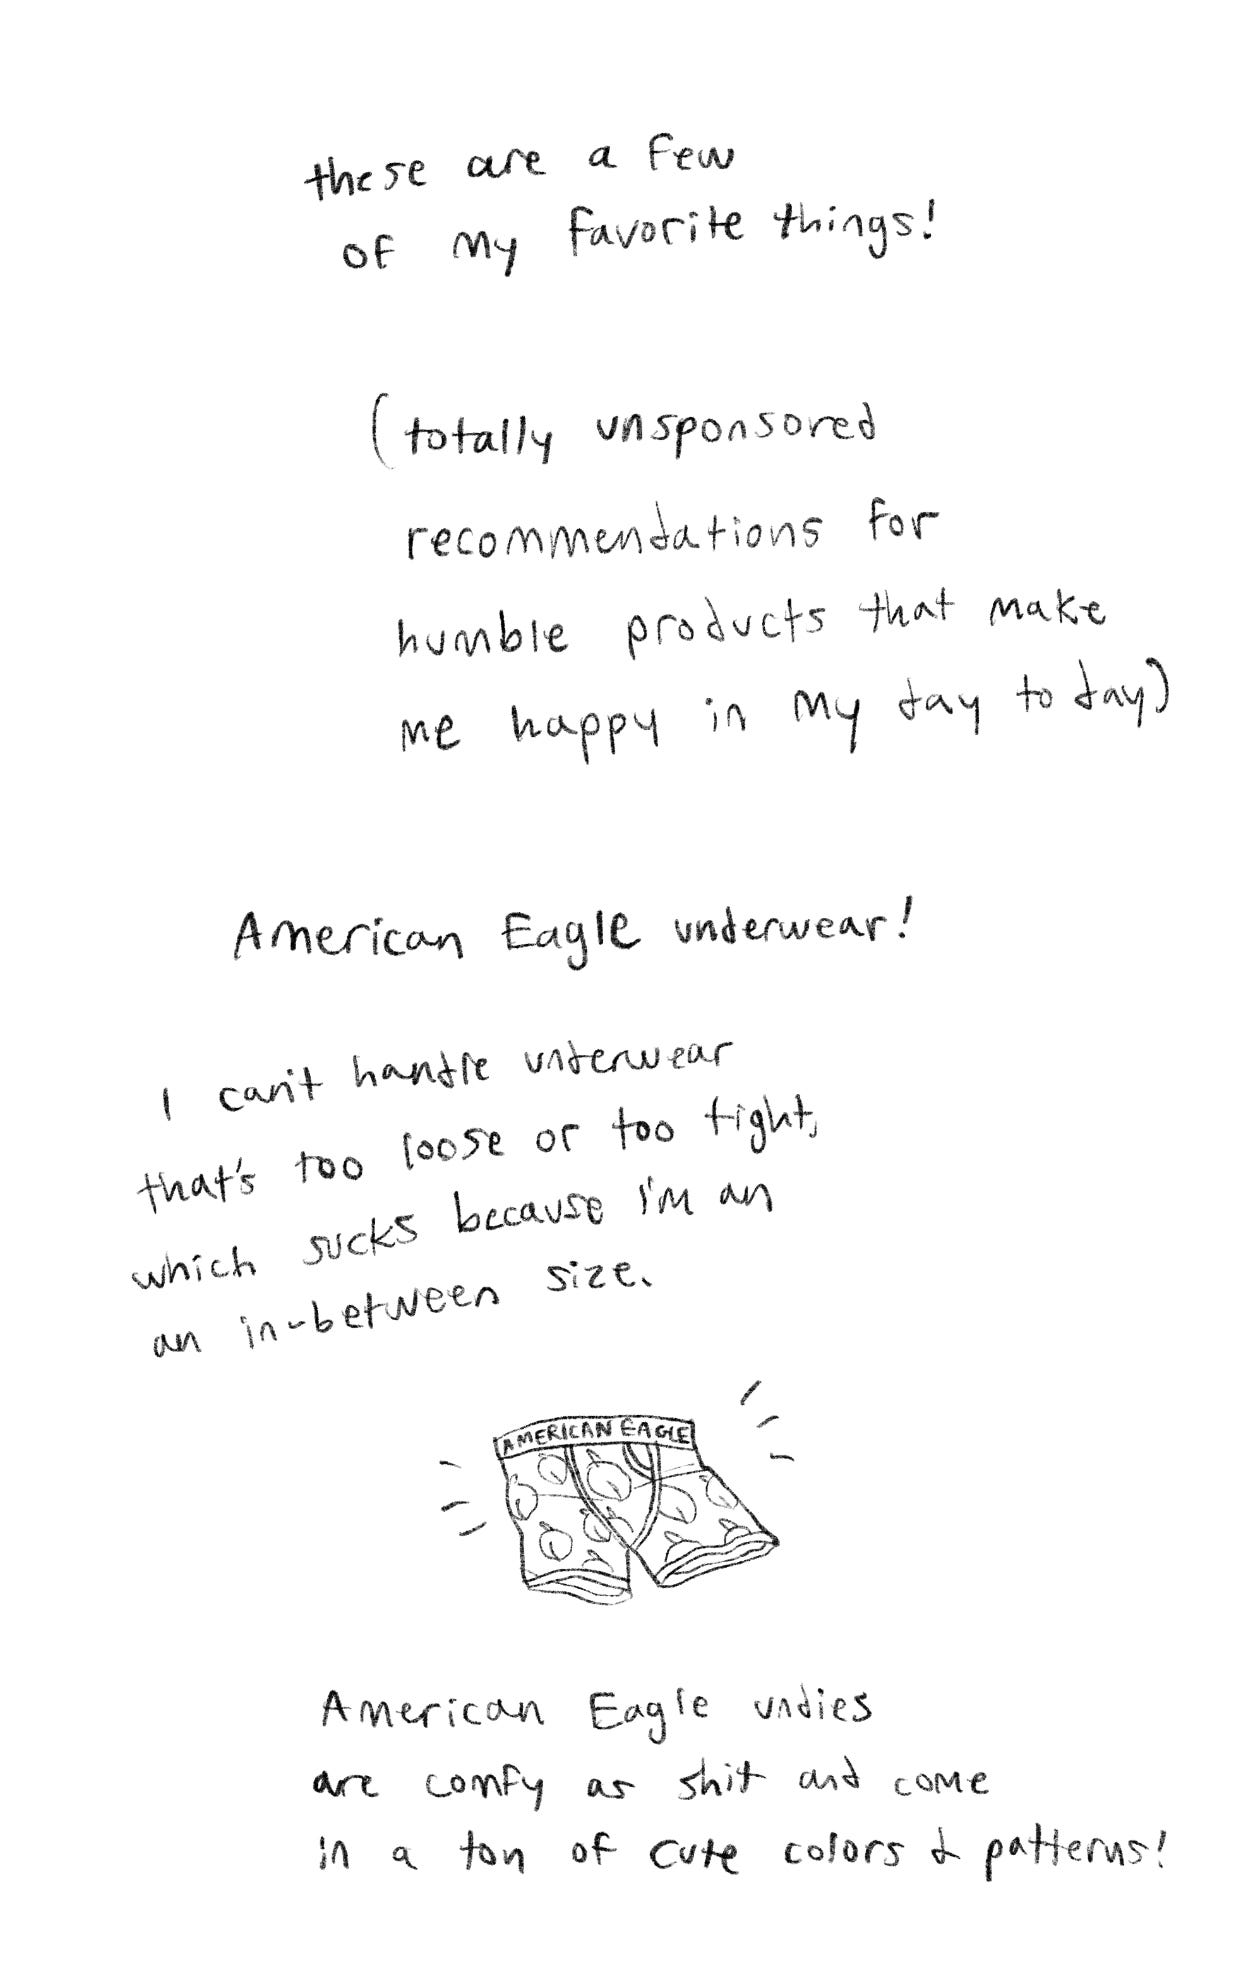 these are a few
of my favorite things!
(totally unsponsored
recommendations for
humble products that make
me happy in my day to day)
American Eagle underwear!
I can't handle underwear
that's too loose or too tight,
which sucks because i'm an
an in-between size.
AMERICAN EAGLE
American Eagle undies
are comfy as shit and come
in a ton of cute colors & patterns!